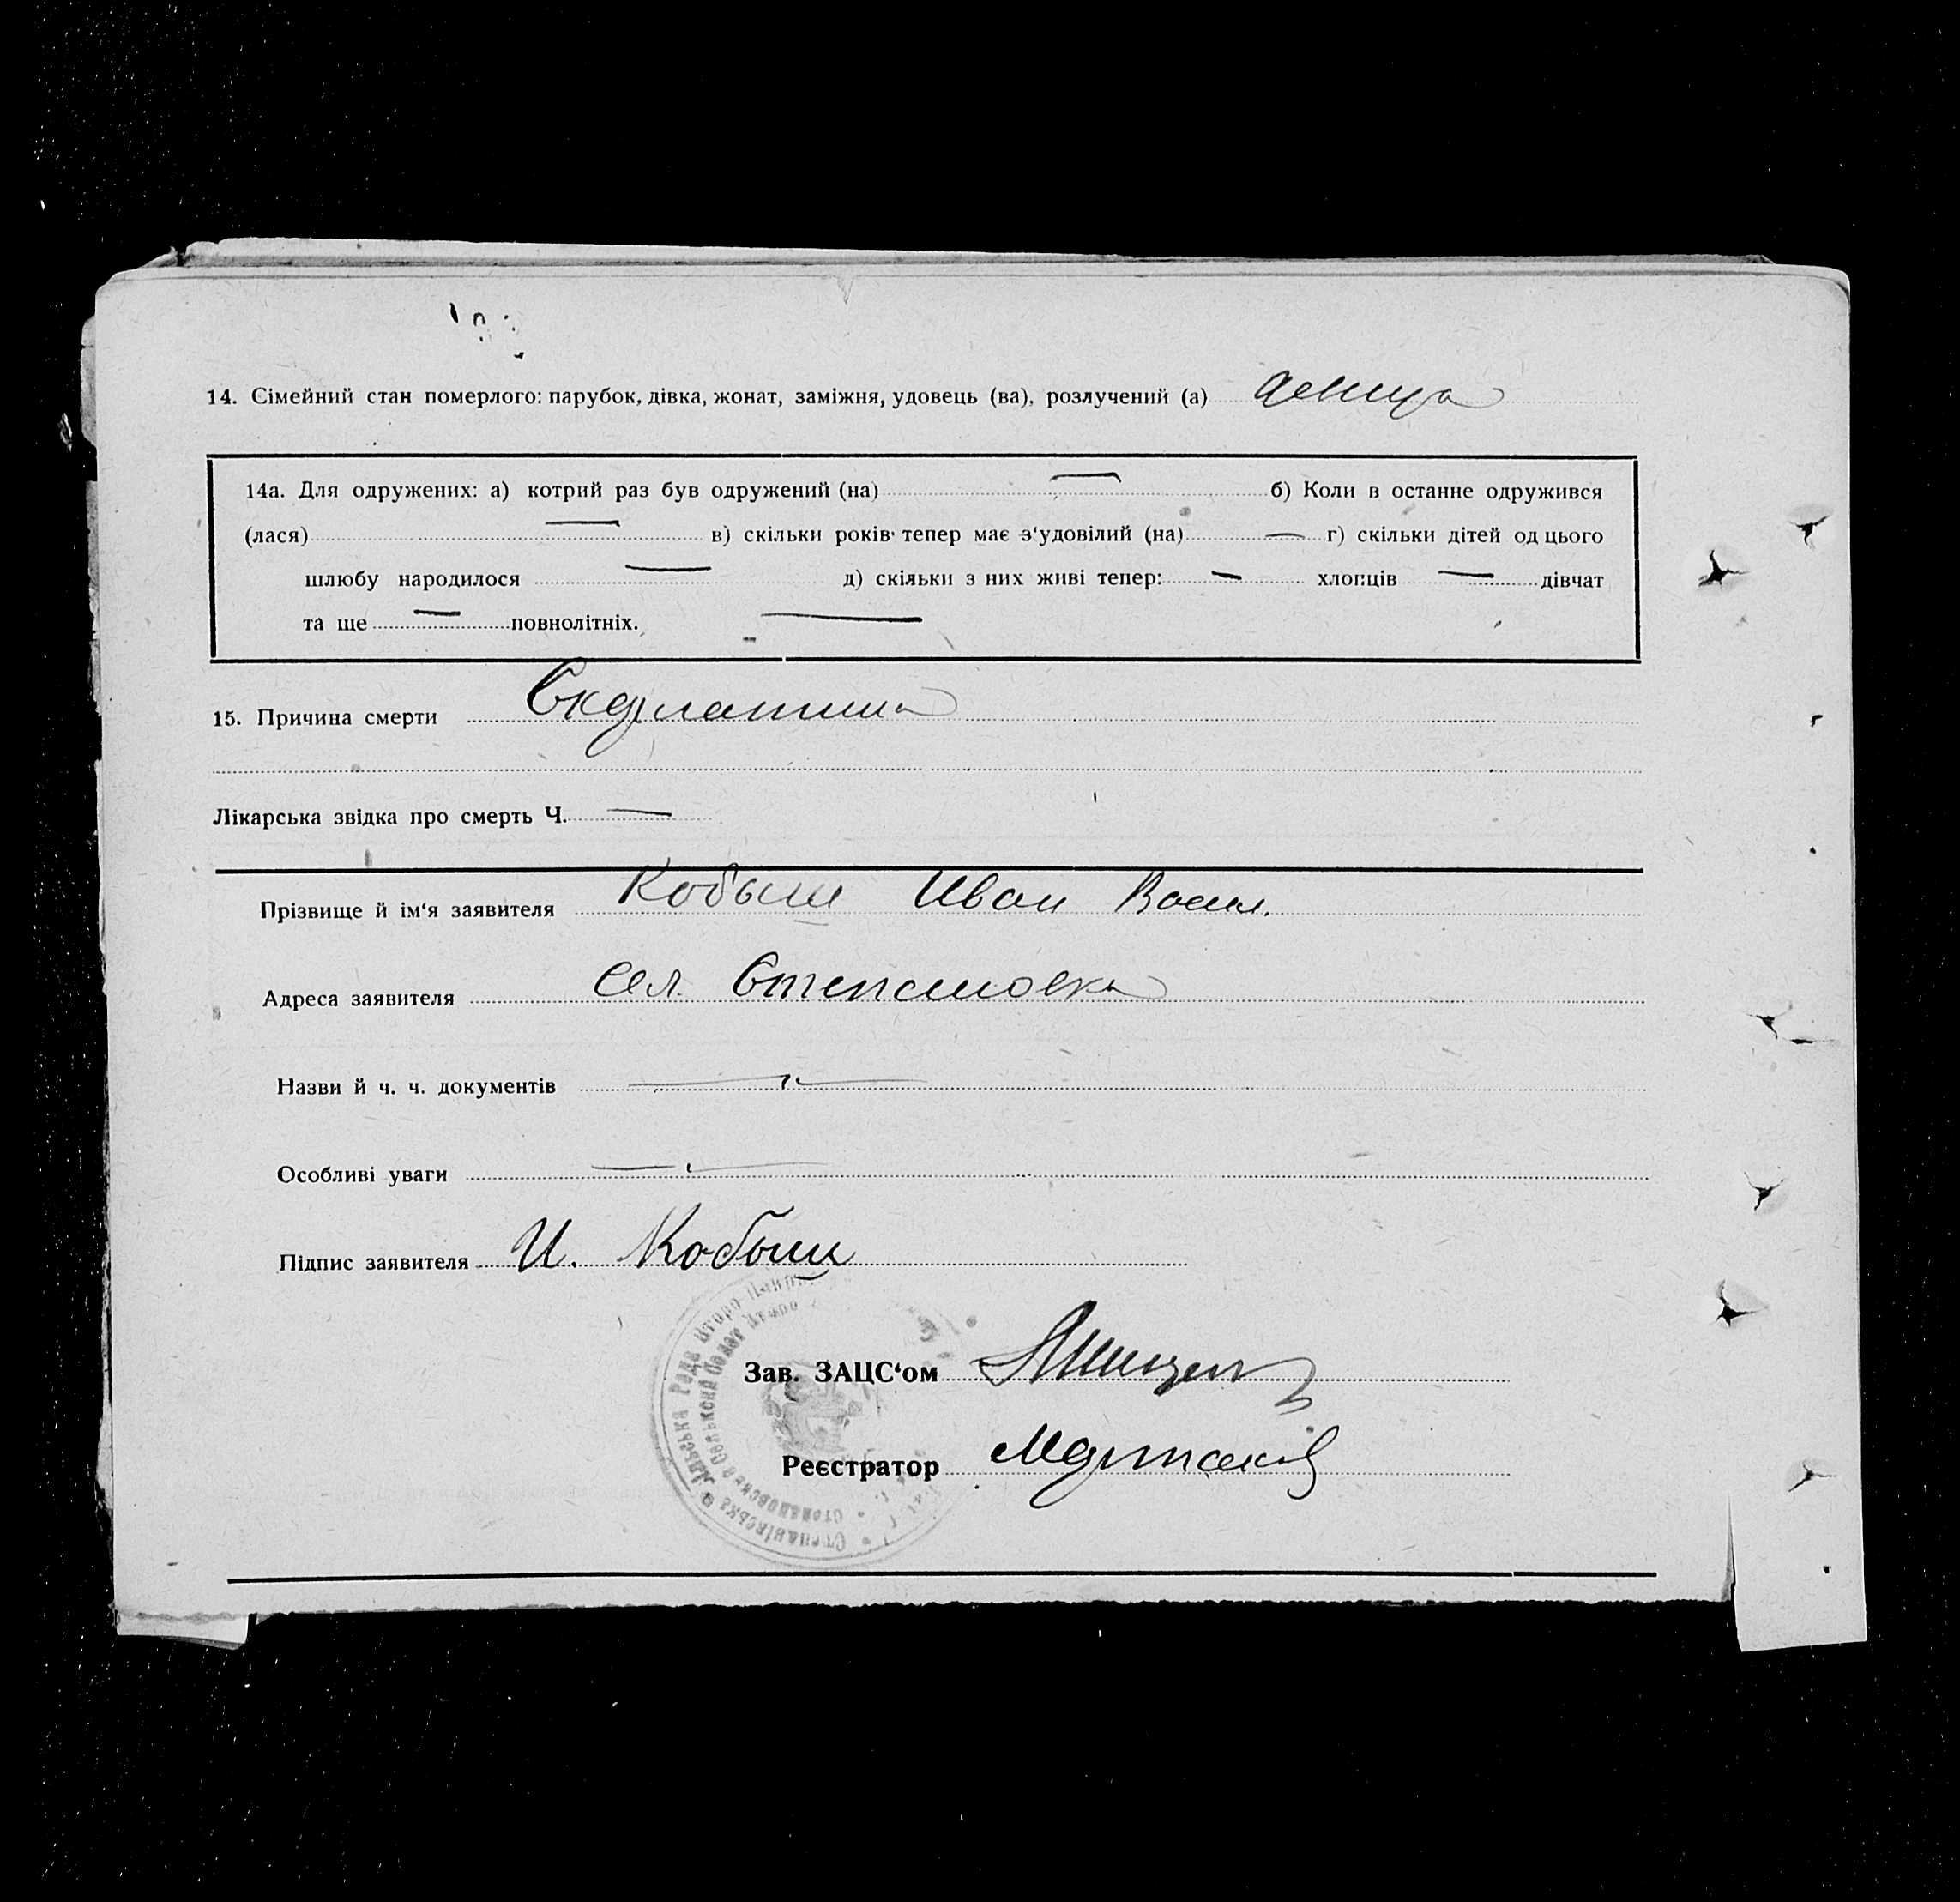 14. Сімейний стан померлого: парубок, дівка, жонат, заміжня, удовець (ва), розлучений (а) девица
14а. Для одружених: а) котрий раз був одружений (на) — б) Коли в останне одружився
(лася) — в) скільки років тепер має з‘удовілий (на) — г) скільки дітей од цього
шлюбу народилося — д) скільки з них живі тепер: — хлопців — дівчат
та ще — повнолітніх. —
15. Причина смерти Скарлатина
Лікарська звідка про смерть Ч. —
Прізвище й ім‘я заявителя Кобыш Иван Васил.
Адреса заявителя сел. Степановка
Назви й ч. ч. документів —
Особливі уваги —
Підпис заявителя И. Кобыш
Зав. ЗАЦС‘ом
Реєстратор
Степанівська Рада
Степановский Сельский